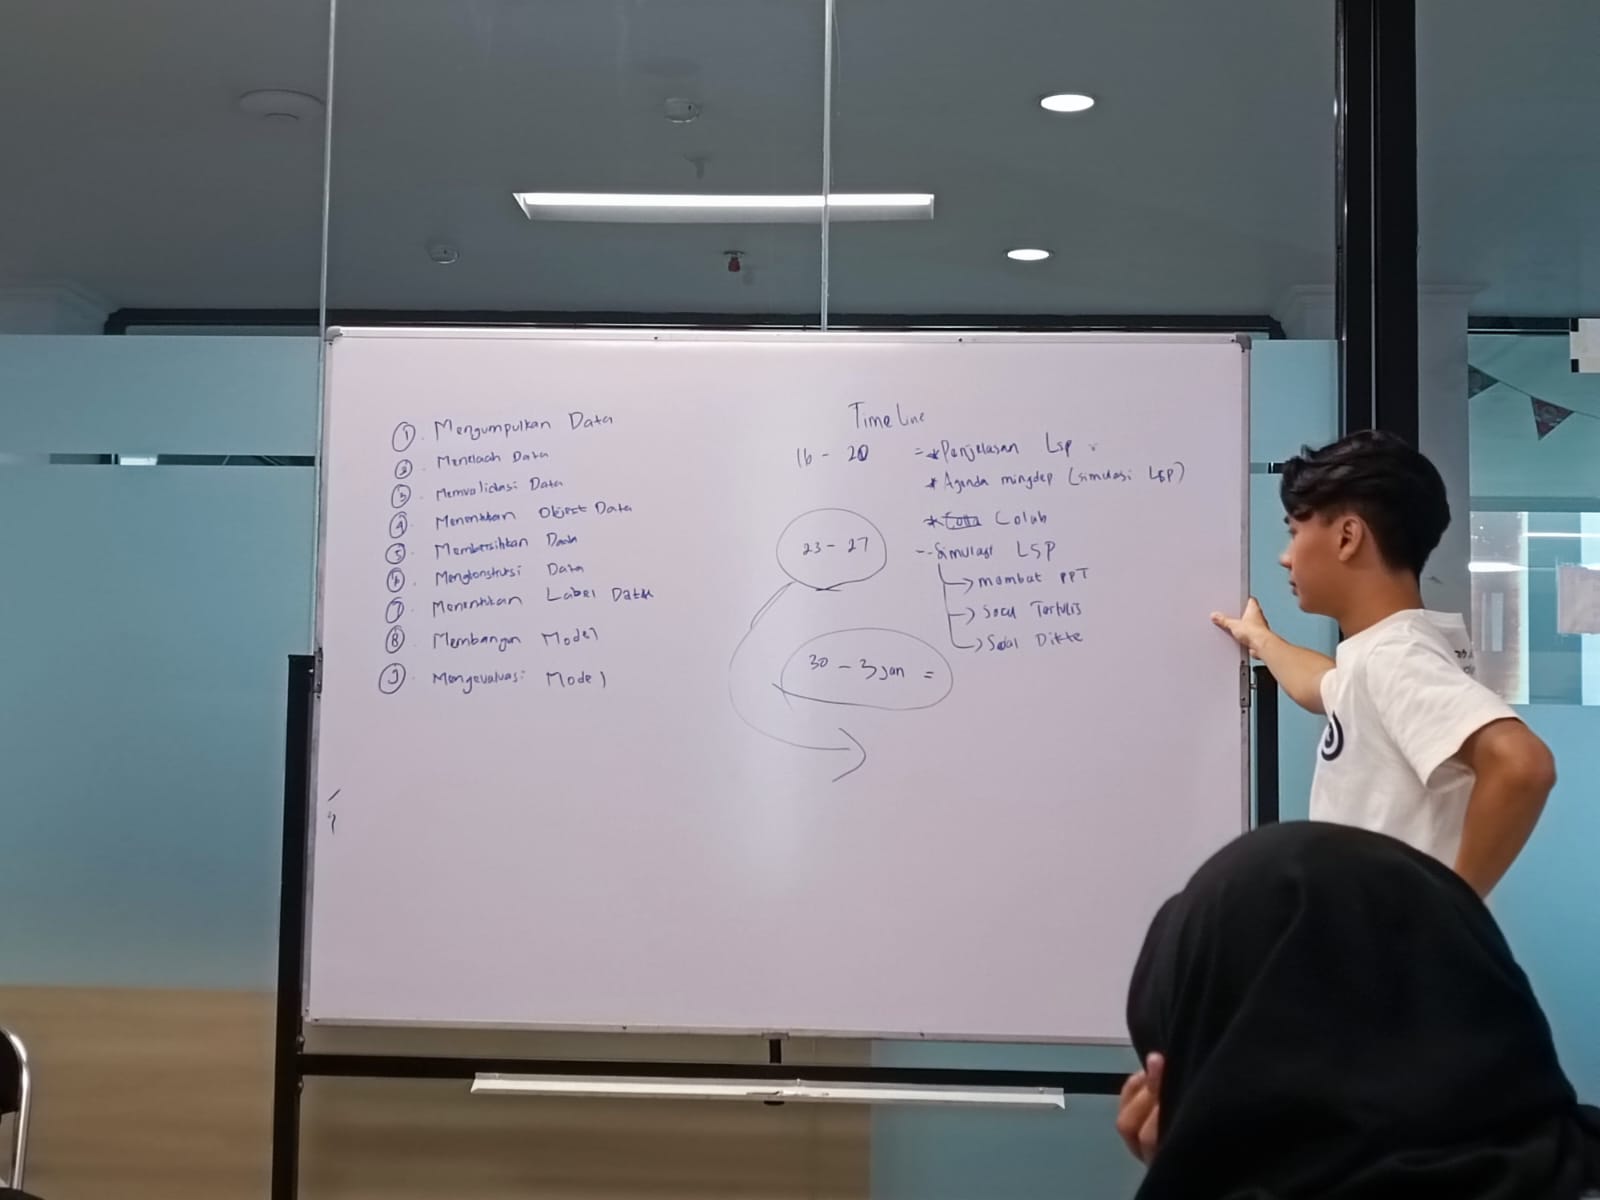 1. Mengumpulkan Data
2. Menelaah Data
3. Memvalidasi Data
4. Menentukan Object Data
5. Membersihkan Data
6. Mengkonstruksi Data
7. Menentukan Label Data
8. Membangun Model
9. Mengevaluasi Model
Time Line
16 - 20 = * Penjelasan Lsp
* Agenda mingdep (simulasi LSP)
* Colab
23 - 27 - Simulasi LSP
→ membat PPT
→ Soal Tertulis
→ Soal Dikte
30 - 3 Jan =